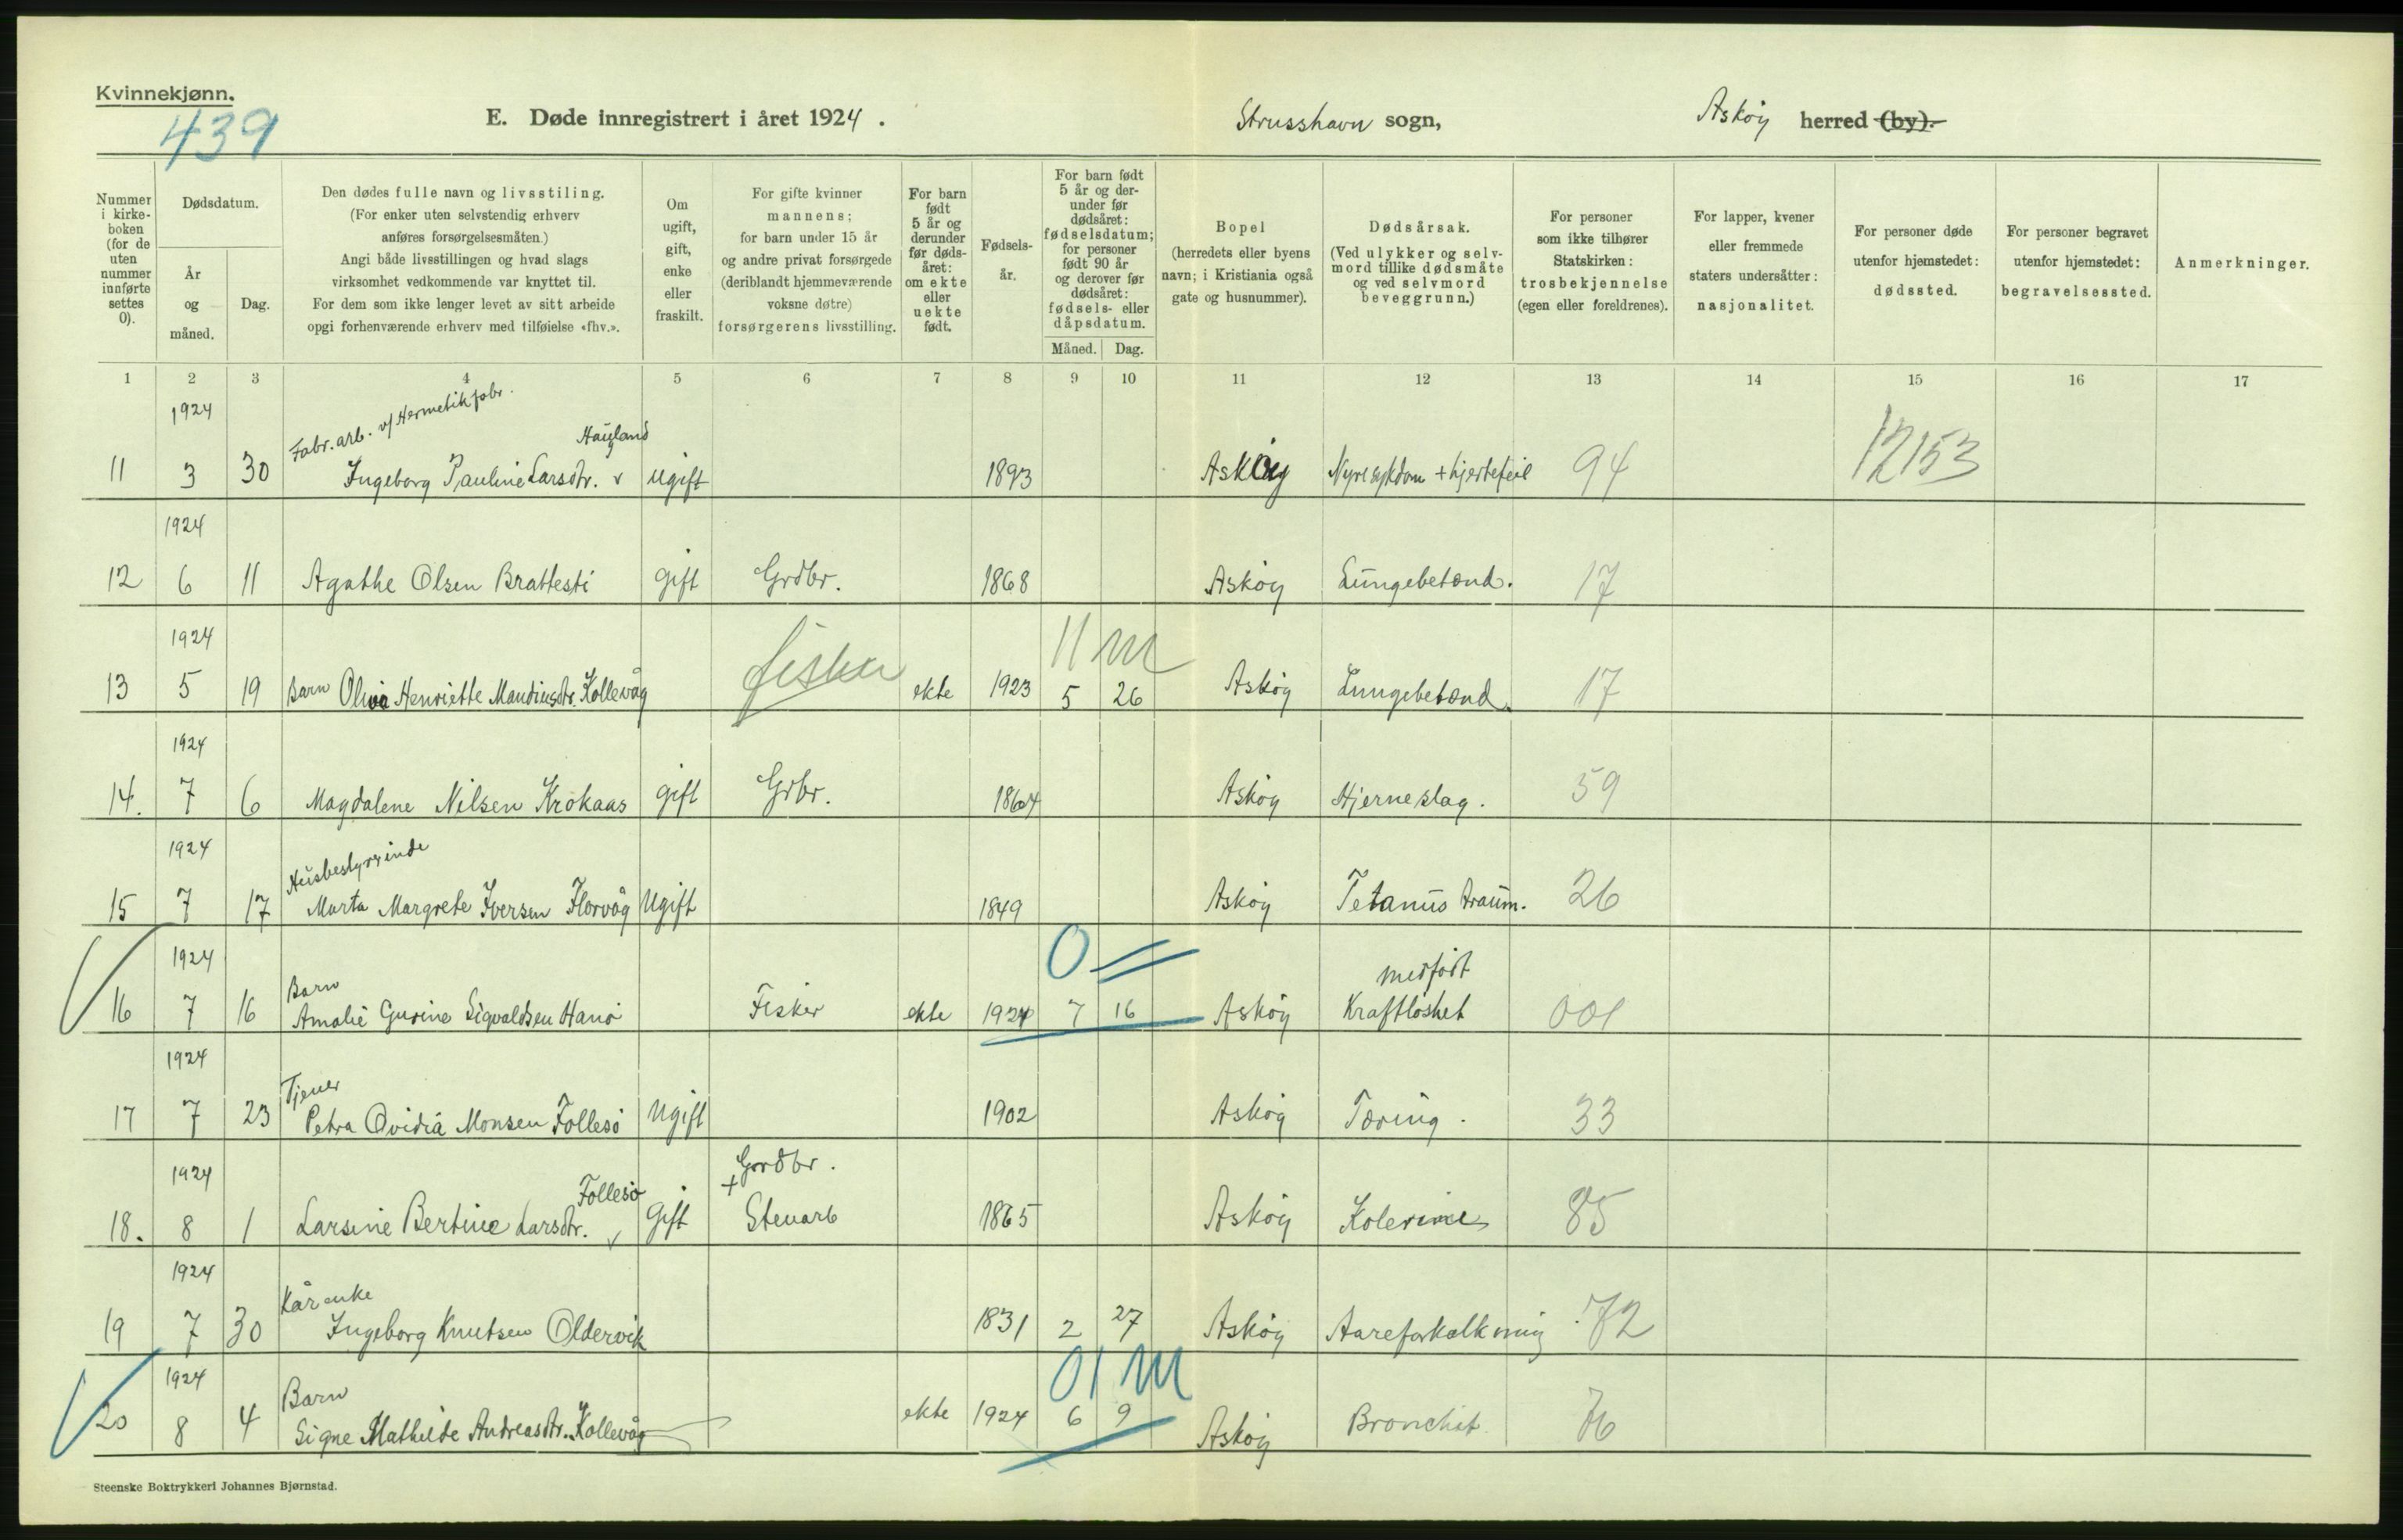 Kvinnekjønn.
439
E. Døde innregistrert i året 1924.
Strusshavn sogn,
Askøy herred (by).
Nummer i kirkeboken (for de uten nummer innførte settes 0).
Dødsdatum.
År og måned.
Dag.
Den dødes fulle navn og livsstiling.
(For enker uten selvstendig erhverv
anføres forsørgelsesmåten.)
Angi både livsstillingen og hvad slags
virksomhet vedkommende var knyttet til.
For dem som ikke lenger levet av sitt arbeide
opgi forhenværende erhverv med tilføielse «fhv.».
Om ugift, gift, enke eller fraskilt.
For gifte kvinner
mannens;
for barn under 15 år
og andre privat forsørgede
(deriblandt hjemmeværende
voksne døtre)
forsørgerens livsstilling.
For barn født 5 år og derunder før dødsåret: om ekte eller uekte født.
Fødselsår.
For barn født 5 år og derunder før dødsåret: fødselsdatum; for personer født 90 år og derover før dødsåret: fødsels- eller dåpsdatum.
Måned. Dag.
Bopel
(herredets eller byens
navn; i Kristiania også
gate og husnummer).
Dødsårsak.
(Ved ulykker og selvmord tillike dødsmåte
og ved selvmord
beveggrunn.)
For personer
som ikke tilhører
Statskirken:
trosbekjennelse
(egen eller foreldrenes).
For lapper, kvener
eller fremmede
staters undersåtter:
nasjonalitet.
For personer døde
utenfor hjemstedet:
dødssted.
For personer begravet
utenfor hjemstedet:
begravelsessted.
Anmerkninger.
1 2 3 4 5 6 7 8 9 10 11 12 13 14 15 16 17
1924 Fabr. arb. v/ Hermetikfabr.
Haugland
11 3 30 Ingeborg Pauline Larsdtr. v Ugift 1893 Askøy Nyresykdom + hjertefeil 94 12153
1924
12 6 11 Agathe Olsen Brattesti gift Grdbr. 1868 Askøy Lungebetænd. 17
1924 11 m
13 5 19 Barn Olivia Henriette Mandiusdtr. Kollevåg fisker ekte 1923 5 26 Askøy Lungebetænd. 17
1924
14. 7 6 Magdalene Nilsen Krokaas gift Grbr. 1864 Askøy Hjerneslag. 59
1924 Husbestyrerinde
15 7 17 Marta Margrete Iversen Florvåg Ugift 1849 Askøy Tetanus traum. 26
1924 Barn 0 medfødt
16 7 16 Amalie Gurine Sigvaldsen Hanø Fisker ekte 1924 7 16 Askøy Kraftløshet 001
1924 Tjener
17 7 23 Petra Ovidia Monsen Follesø Ugift 1902 Askøy Tæring. 33
1924 Follesø + Grdbr.
18. 8 1 Larsine Bertine Larsdtr. v Gift Stenarb 1865 Askøy Kolerine 85
1924 Kårenke
19 7 30 Ingeborg Knutsen Oldervik 1831 2 27 Askøy Aareforkalkning 72
1924 Barn 01 m
20 8 4 Signe Mathilde Andreasdtr. Kollevåg ekte 1924 6 9 Askøy Bronchit. 76
Steenske Boktrykkeri Johannes Bjørnstad.